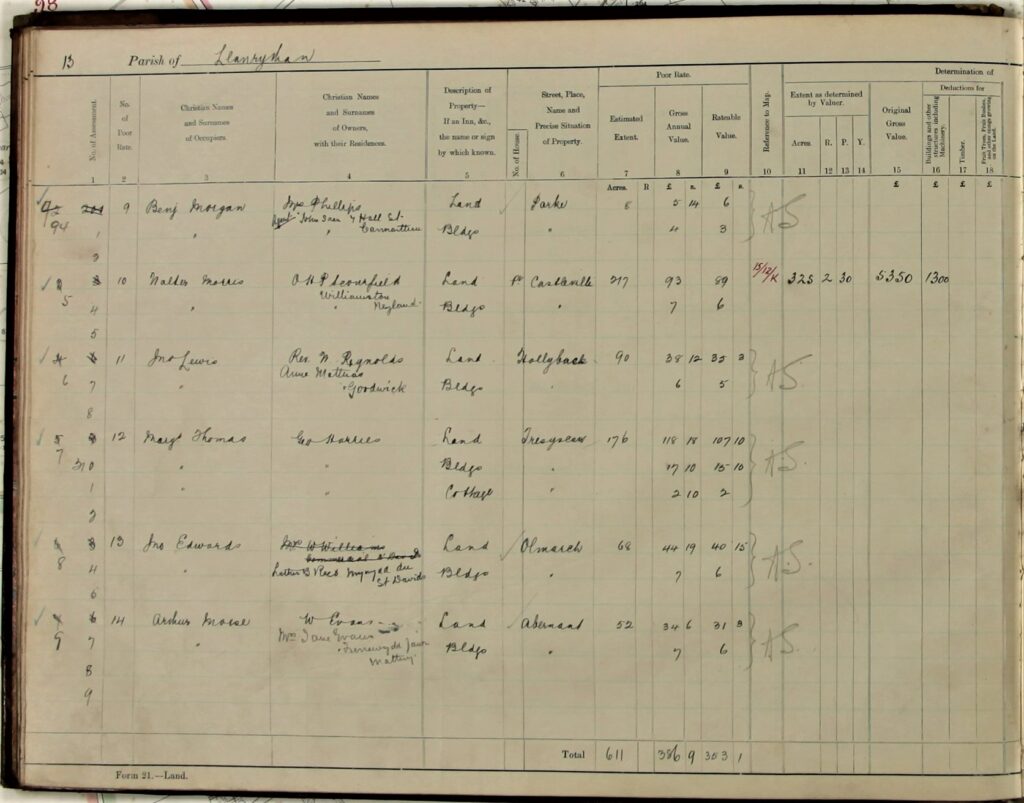 98
13 Parish of Llanrythan
Poor Rate.
Determination of
No. of Assessment.
No. of Poor Rate.
Christian Names and Surnames of Occupiers.
Christian Names and Surnames of Owners, with their Residences.
Description of Property—If an Inn, &c., the name or sign by which known.
No. of House
Street, Place, Name and Precise Situation of Property.
Estimated Extent.
Gross Annual Value.
Rateable Value.
Reference to Map.
Extent as determined by Valuer.
Acres. R. P. Y.
Original Gross Value.
Deductions for
Buildings and other structures including Machinery.
Timber.
Fruit Trees, Fruit Bushes, and other things growing on the Land.
1 2 3 4 5 6 7 8 9 10 11 12 13 14 15 16 17 18
Acres. R £ s. £ s. £ £ £ £
9 Benj Morgan Mrs Phillips Land Parke 8 5 14 6 AS
94 1 " Hall St Bldgs " 4 3
Carmarthen
2
10 Walter Morris O H P Scourfield Land Castleville 217 93 89 15/12/K 325 2 30 5350 1300
5 4 " Williamston Bldgs " 7 6
Neyland
5
11 Jno Lewis Rev W. Reynolds Land Hollyback 90 38 12 35 3 AS
6 7 " Anne Mathias Bldgs " 6 5
Goodwick
8
12 Margt Thomas Geo Harries Land 176 118 18 107 10 AS.
7 " " Bldgs " 17 10 15 10
1 " " Cottage " 2 10 2
2
13 Jno Edwards Mrs W Williams Land Olmarch 68 44 19 40 15 AS.
8 4 Mynydd du Bldgs " 7 6
St Davids
6
14 Arthur Morse W Evans Land Abernant 52 34 6 31 3 AS
9 7 " Mrs Jane Evans Bldgs " 7 6
Mathry
8
9
Total 611 386 9 353 1
Form 21.—Land.